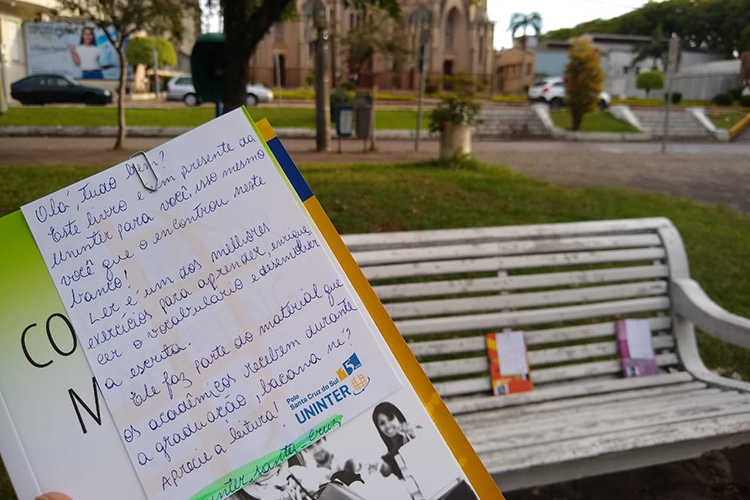 Olá, Tudo bem?
Este livro é um presente da
Uninter para você, isso mesmo
você que o encontrou neste
banco!
Ler é um dos melhores
exercícios para aprender, enrique
cer o vocabulário e desenvolver
a escrita.
Ele faz parte do material que
os acadêmicos recebem durante
a graduação, bacana né?
Aprecie a leitura!
Polo
Santa Cruz do Sul
UNINTER
CO
M